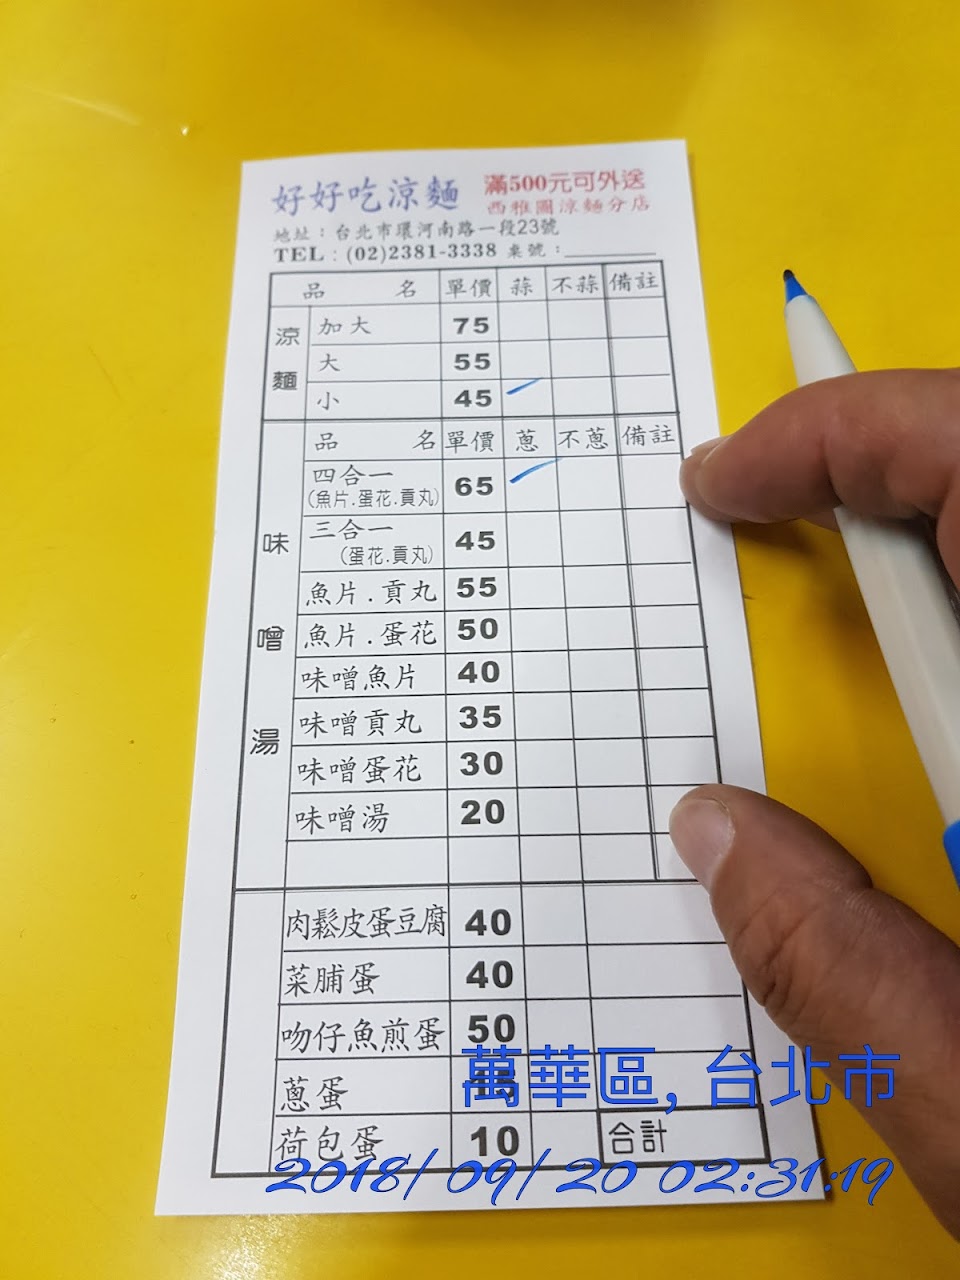 好好吃涼麵 滿500元可外送
西雅圖涼麵分店
地址：台北市環河南路一段23號
TEL：(02)2381-3338 桌號：
品 名 單價 蒜 不蒜 備註
涼麵
加大 75
大 55
小 45
品 名 單價 蔥 不蔥 備註
味噌湯
四合一 65
(魚片.蛋花.貢丸)
三合一 45
(蛋花.貢丸)
魚片.貢丸 55
魚片.蛋花 50
味噌魚片 40
味噌貢丸 35
味噌蛋花 30
味噌湯 20
肉鬆皮蛋豆腐 40
菜脯蛋 40
吻仔魚煎蛋 50
蔥蛋
荷包蛋 10 合計
萬華區, 台北市
2018/09/20 02:31:19